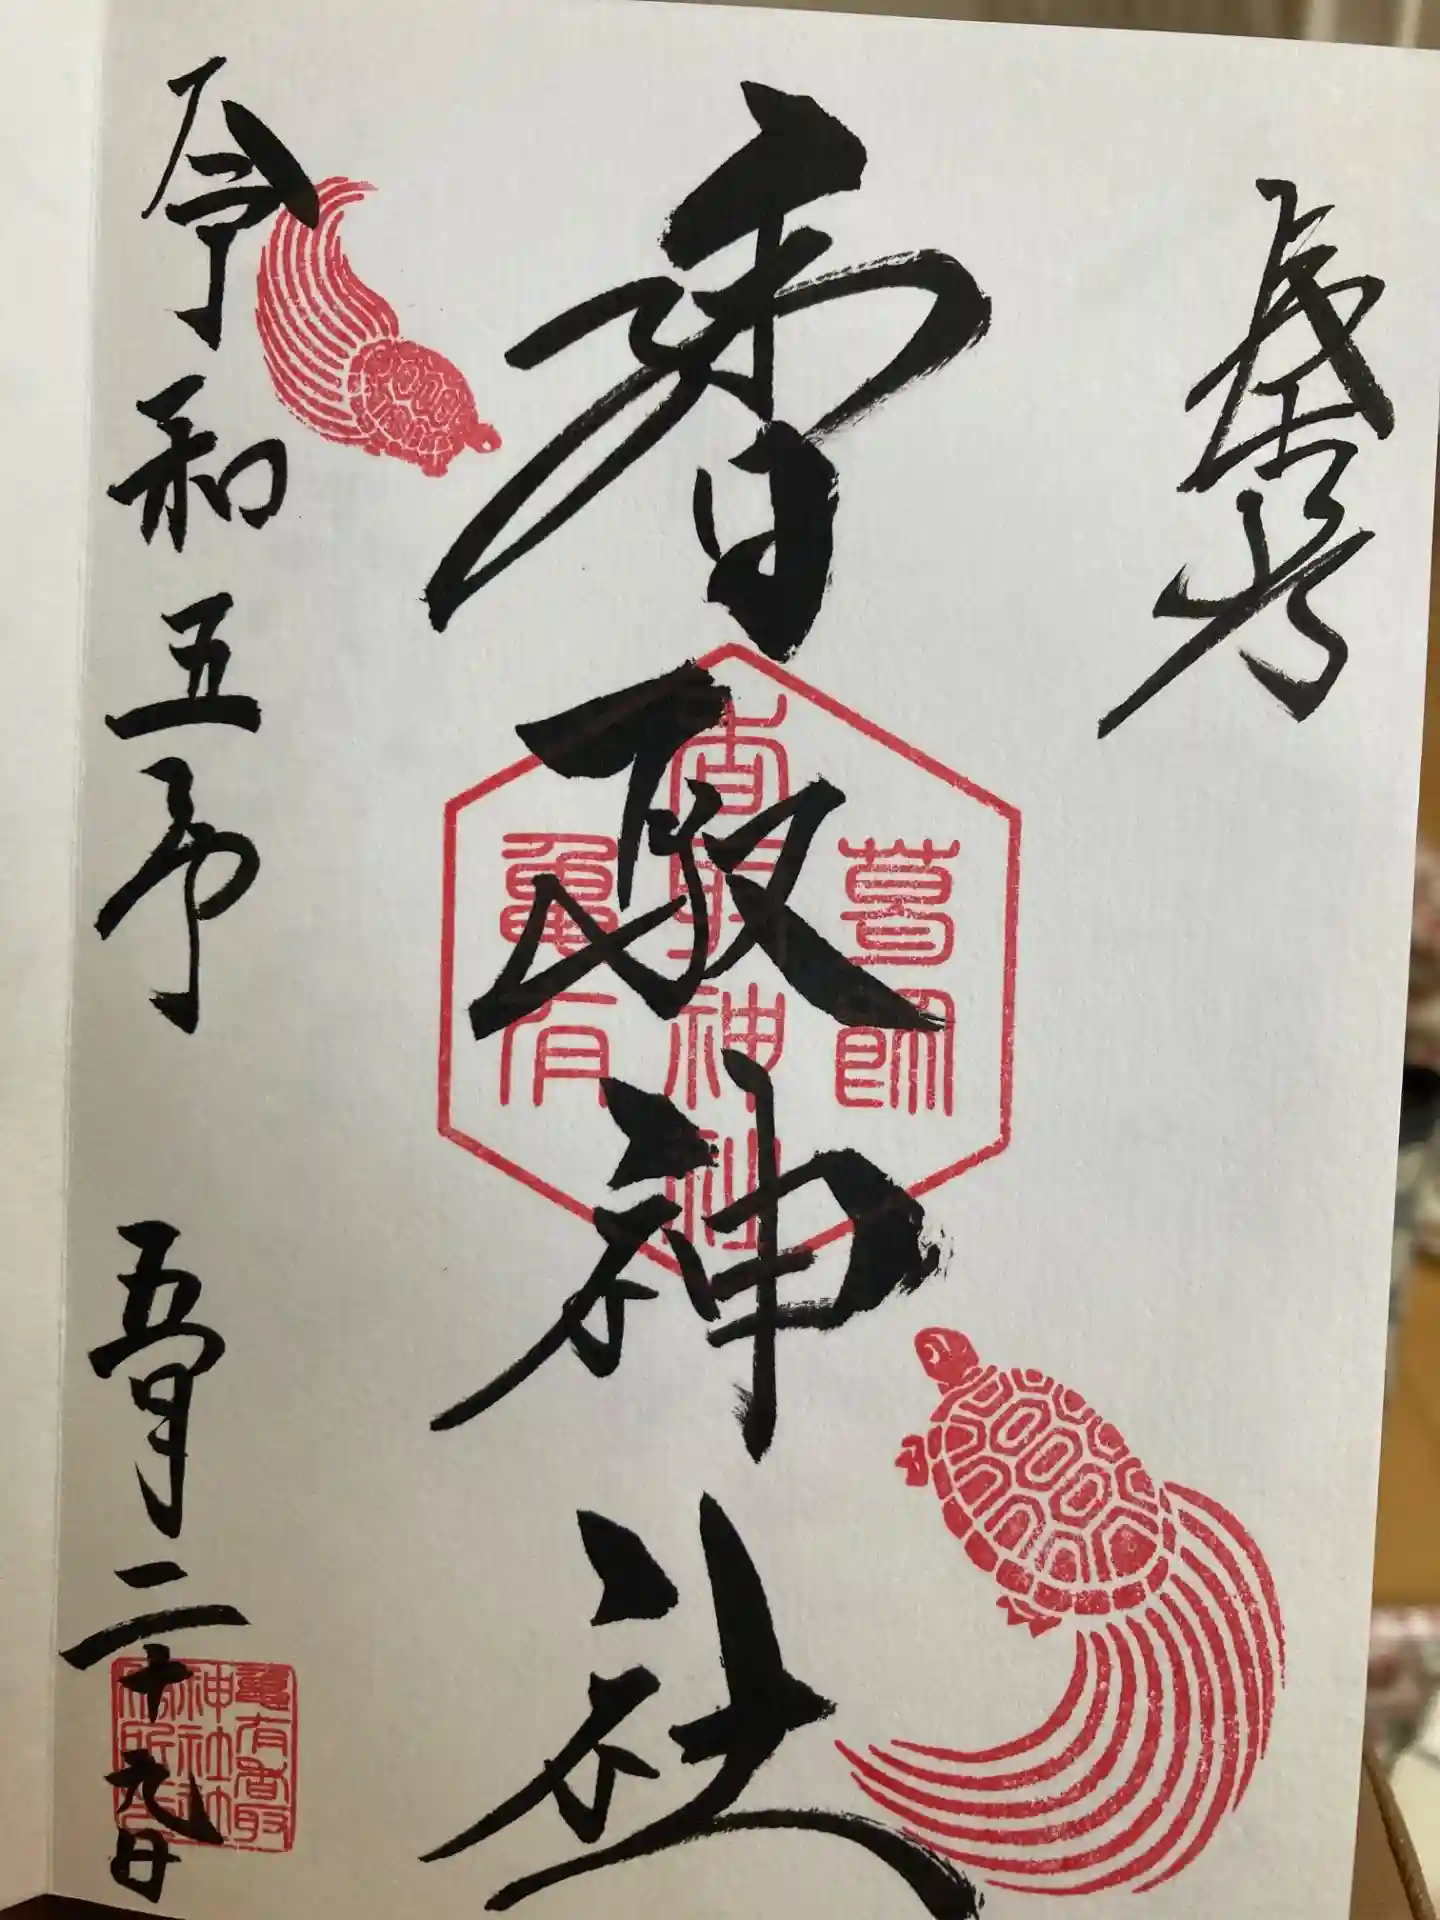 香取神社
葛飾
香取神社
亀有
令和五年 五月二十九日
亀有香取
神社社